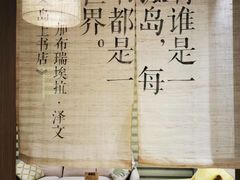 谁是一
岛，每
都是一
世界。
加布瑞埃拉·泽文
岛上书店》